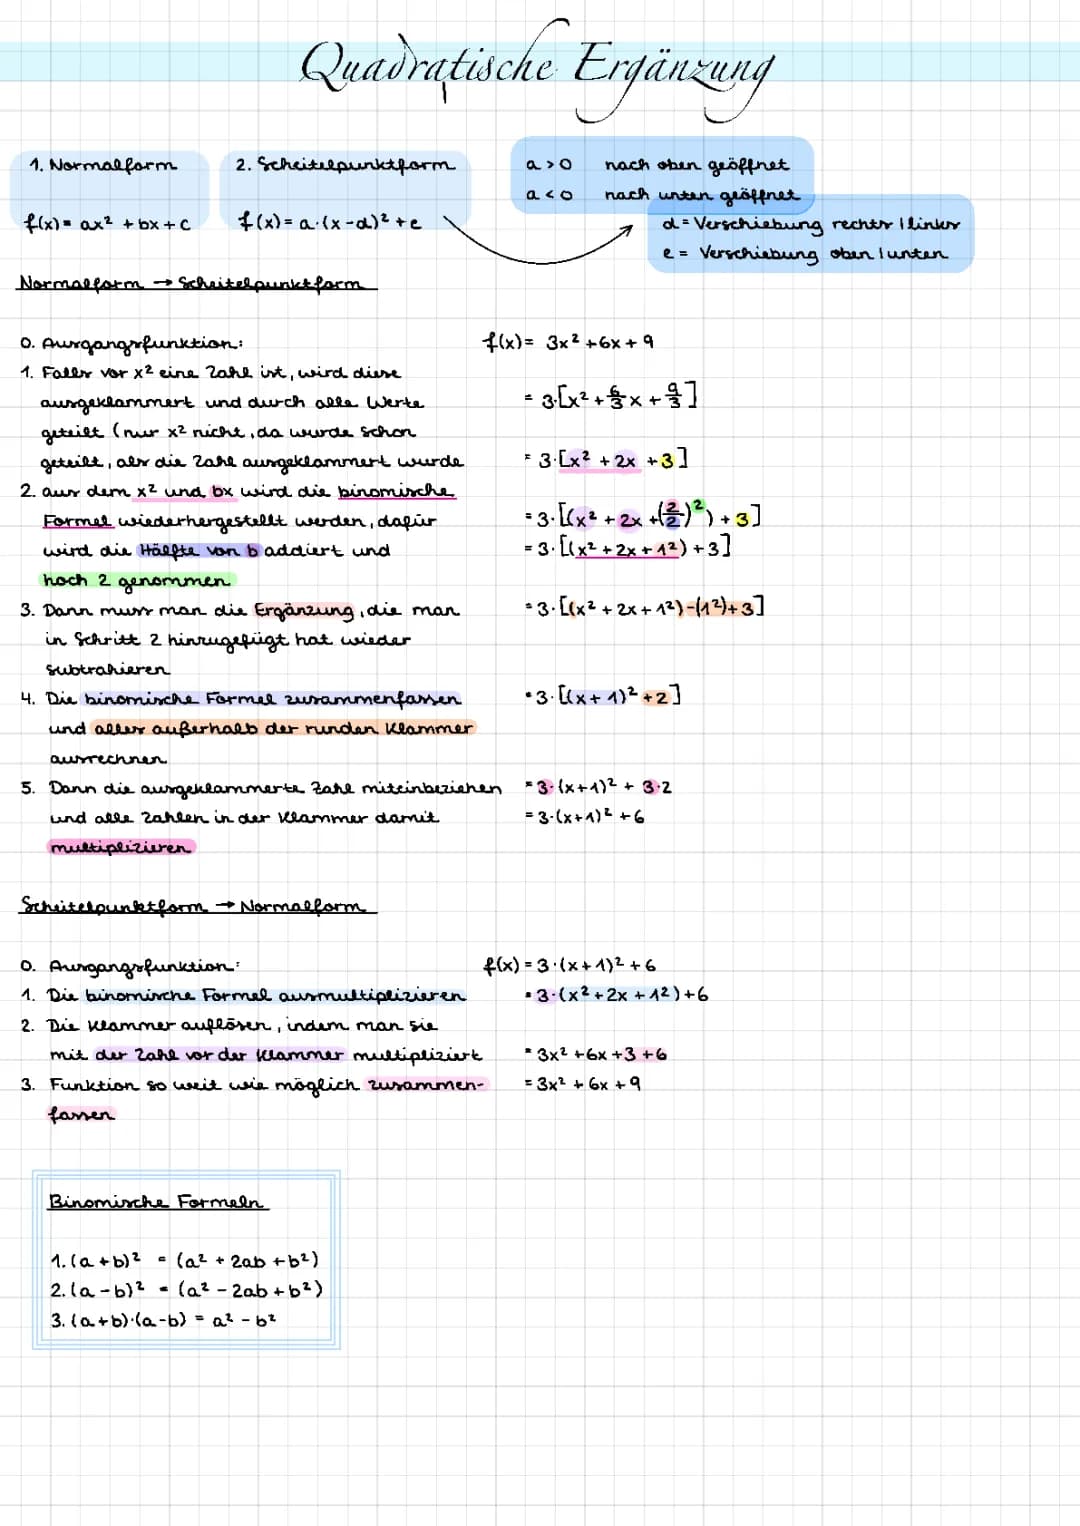 Quadratische Ergänzung
1. Normalform
f(x) = ax² + bx + c
2. Scheitelpunktform
f(x) = a·(x-d)² + e
a > 0 nach oben geöffnet
a < 0 nach unten geöffnet
d = Verschiebung rechts / links
e = Verschiebung oben / unten
Normalform → Scheitelpunktform
0. Ausgangsfunktion: f(x) = 3x² + 6x + 9
1. Falls vor x² eine Zahl ist, wird diese
ausgeklammert und durch alle Werte = 3·[x² + 6/3 x + 9/3]
geteilt (nur x² nicht, da wurde schon
geteilt, als die Zahl ausgeklammert wurde = 3·[x² + 2x + 3]
2. aus dem x² und bx wird die binomische
Formel wiederhergestellt werden, dafür = 3·[(x² + 2x + (2/2)²) + 3]
wird die Hälfte von b addiert und = 3·[(x² + 2x + 1²) + 3]
hoch 2 genommen
3. Dann muss man die Ergänzung, die man = 3·[(x² + 2x + 1²) - (1²) + 3]
in Schritt 2 hinzugefügt hat wieder
subtrahieren
4. Die binomische Formel zusammenfassen = 3·[(x + 1)² + 2]
und alles außerhalb der runden Klammer
ausrechnen
5. Dann die ausgeklammerte Zahl miteinbeziehen = 3·(x+1)² + 3·2
und alle Zahlen in der Klammer damit = 3·(x+1)² + 6
multiplizieren
Scheitelpunktform → Normalform
0. Ausgangsfunktion: f(x) = 3·(x+1)² + 6
1. Die binomische Formel ausmultiplizieren = 3·(x² + 2x + 1²) + 6
2. Die Klammer auflösen, indem man sie
mit der Zahl vor der Klammer multipliziert = 3x² + 6x + 3 + 6
3. Funktion so weit wie möglich zusammen- = 3x² + 6x + 9
fassen
Binomische Formeln
1. (a + b)² = (a² + 2ab + b²)
2. (a - b)² = (a² - 2ab + b²)
3. (a+b)·(a-b) = a² - b²